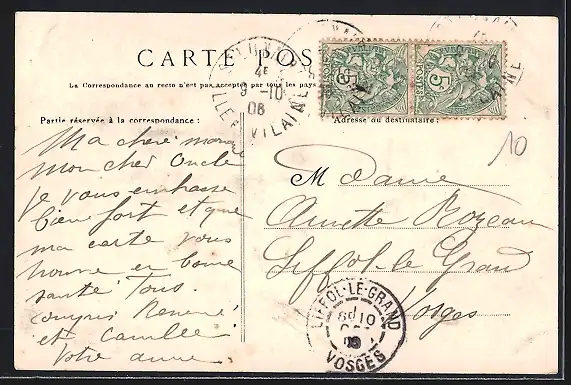 CARTE POS
La Correspondance au recto n'est pas acceptée par tous les pays
Partie réservée à la correspondance :
Adresse du destinataire :
5-10
08
ILLE & VILAINE
5c
5c
10
Ma chère
mon cher Oncle
Je vous embrasse
bien fort et que
ma carte vous
trouve en bonne
santé Tous.
compris
et Camille
Votre
M Dame
Liffol le Grand
Vosges
LIFFOL-LE-GRAND
10
OCT
08
VOSGES